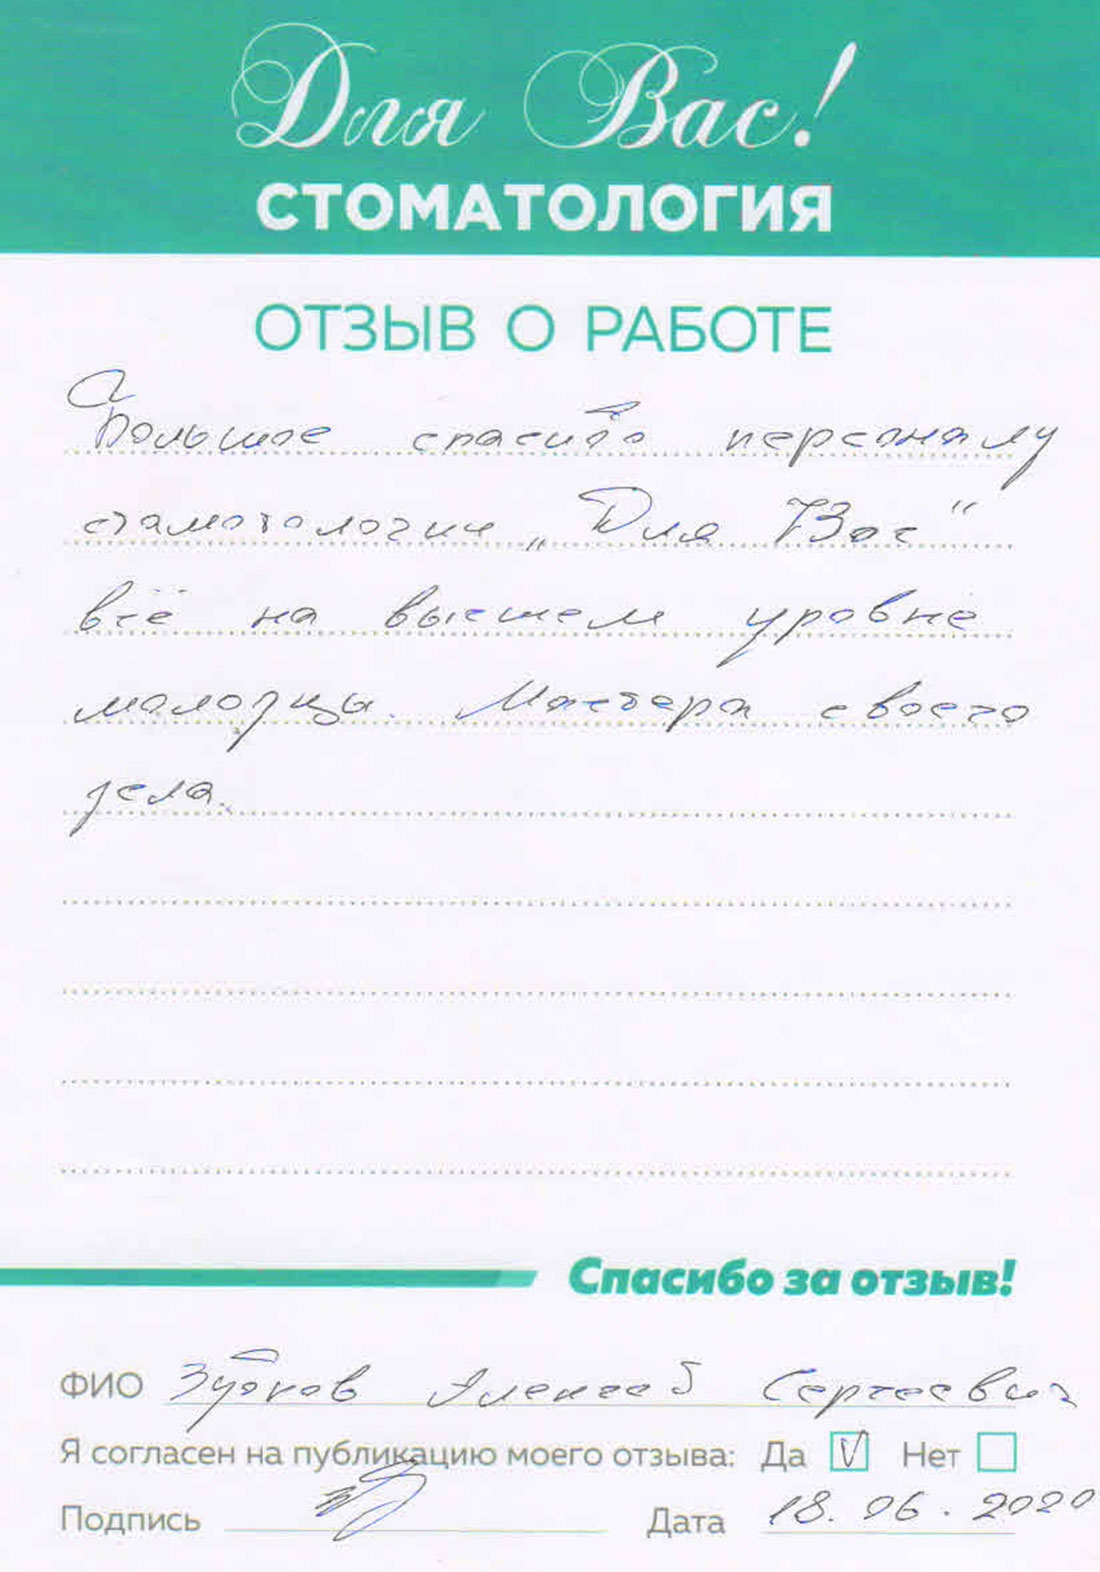 Для Вас!
СТОМАТОЛОГИЯ
ОТЗЫВ О РАБОТЕ
Большое спасибо персоналу
стамотологии „Для Вас"
всё на высшем уровне
молодцы. Мастера своего
дела.
Спасибо за отзыв!
ФИО Зубков Алексей Сергеевич
Я согласен на публикацию моего отзыва: Да V Нет
Подпись Дата 18.06.2020